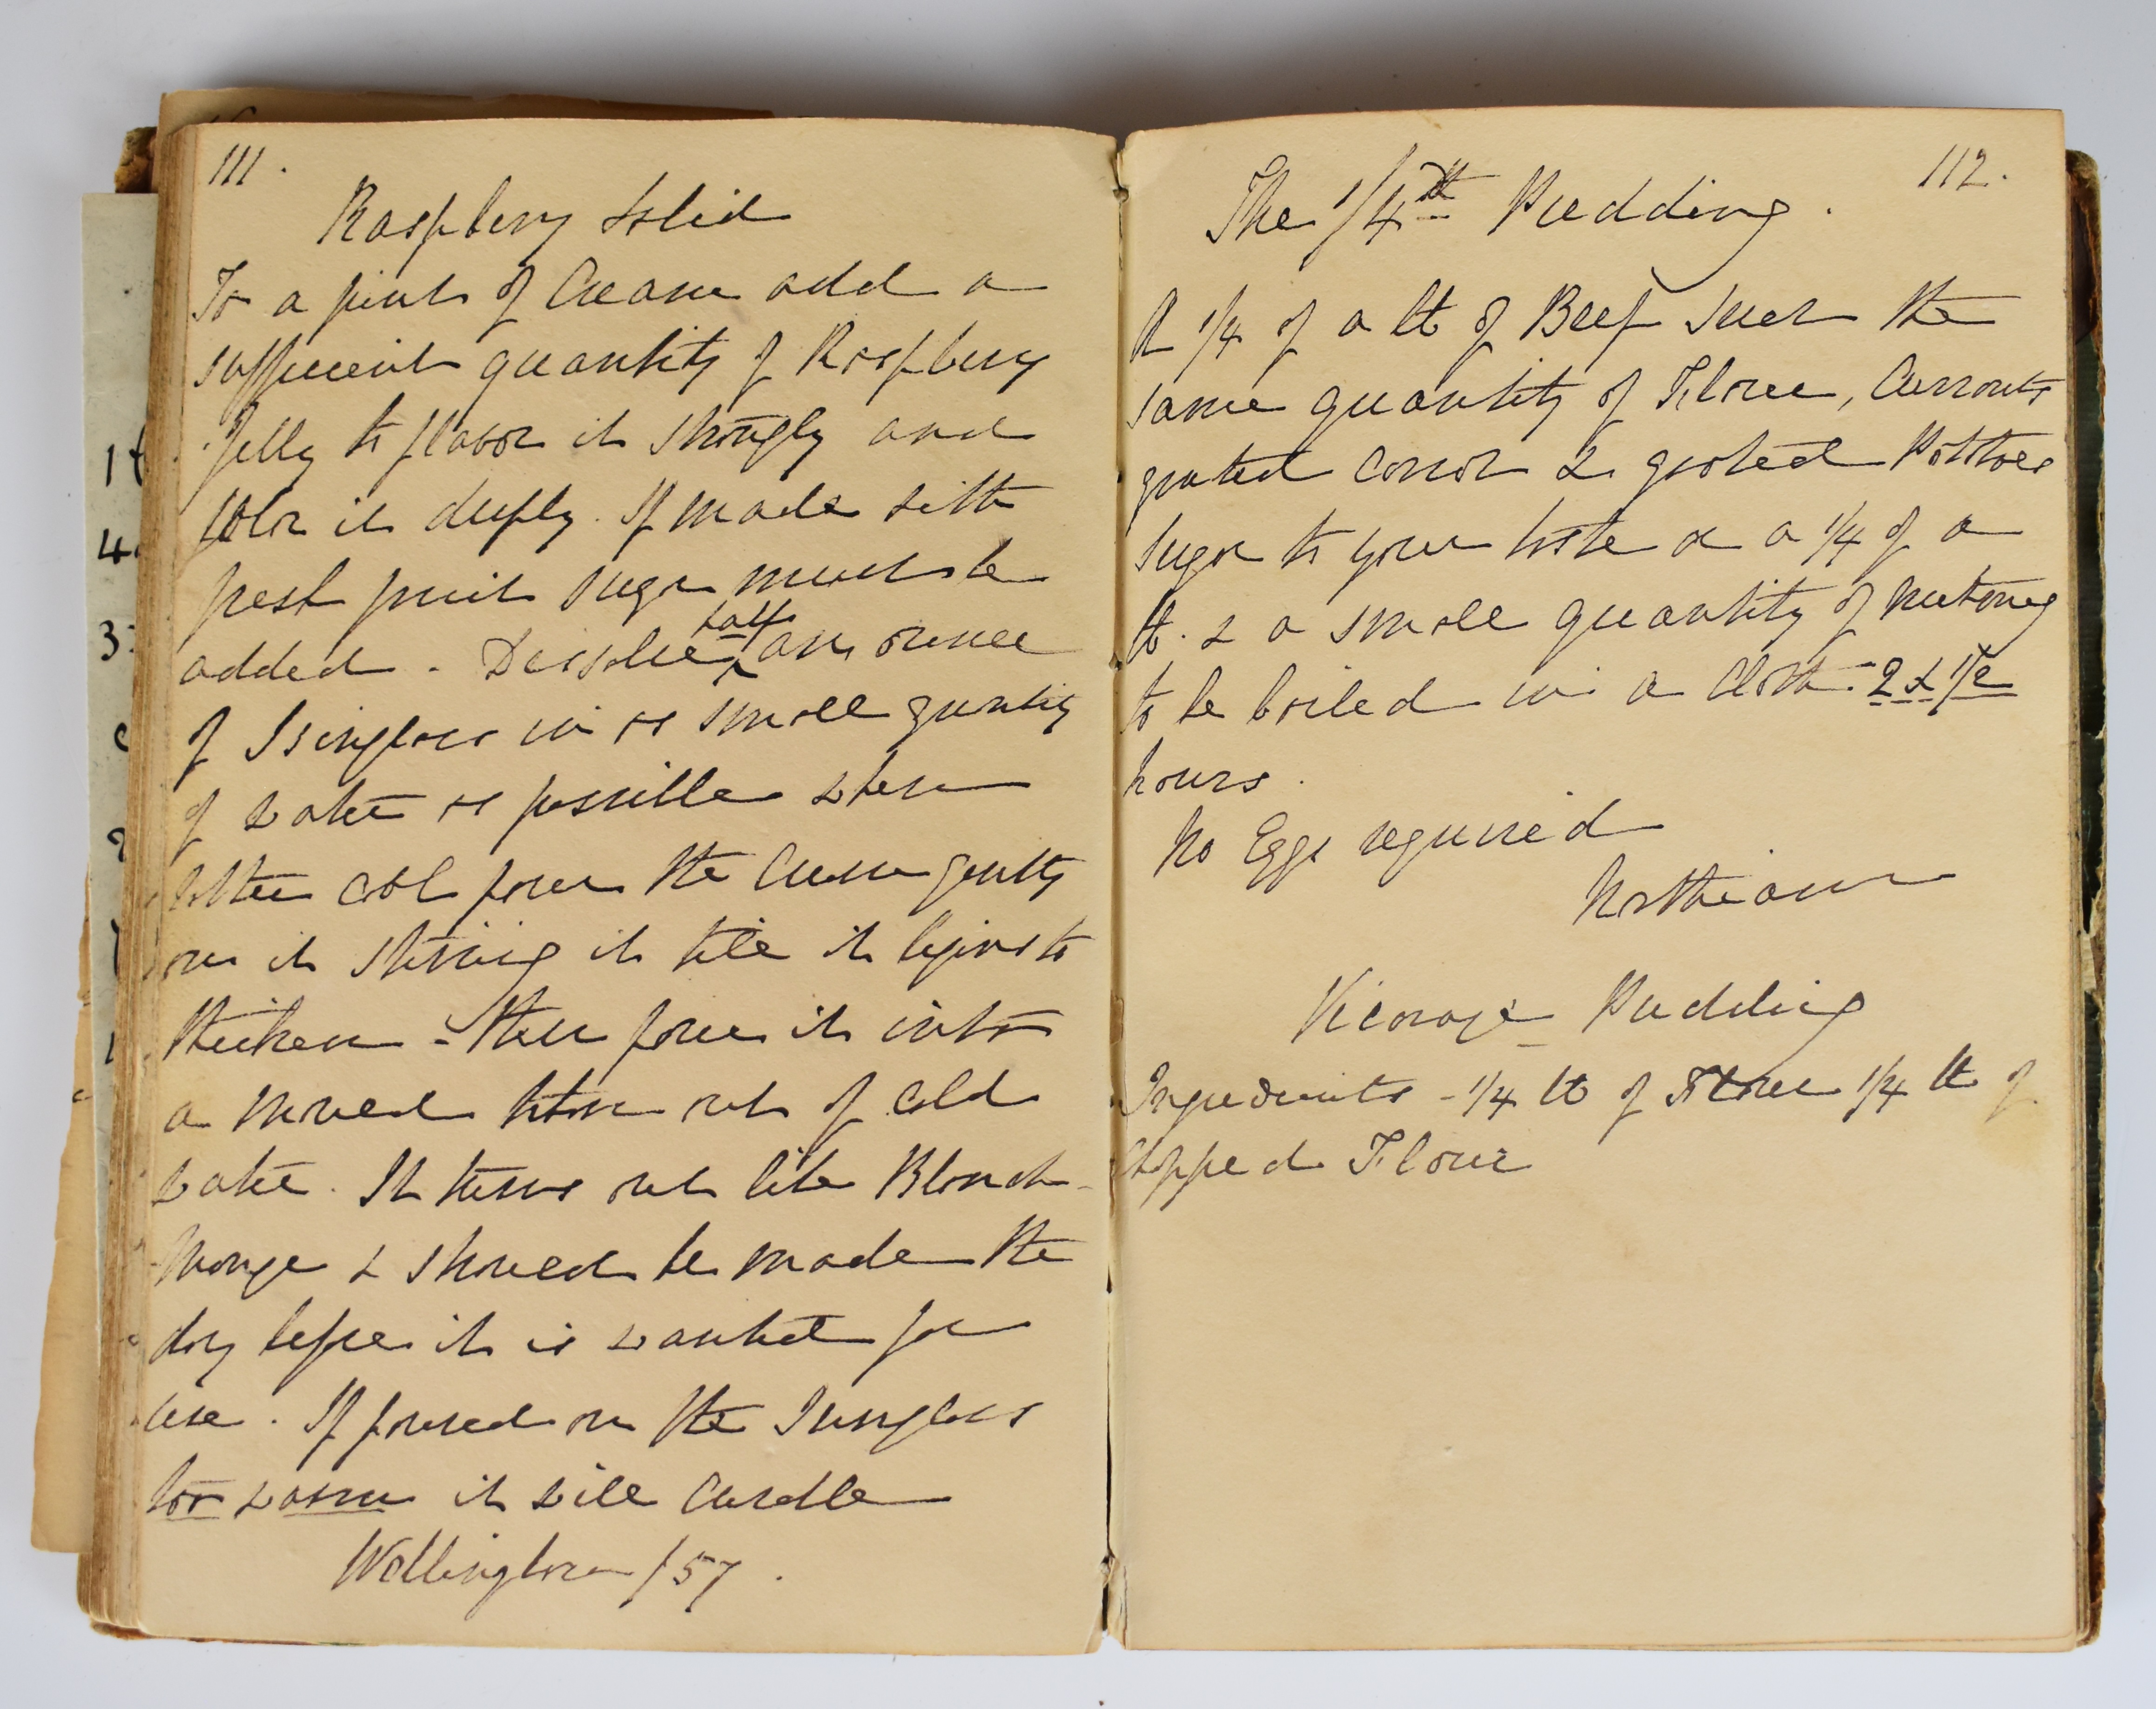 111.
Raspberry Solid
To a pint of Cream add a
sufficient quantity of Raspberry
Jelly to flavor it strongly and
color it deeply. If made with
fresh fruit sugar must be
added - Dissolve half an ounce
of Isinglass in as small quantity
of water as possible when
rather cool pour the Cream gently
on it stirring it till it begins to
thicken - then pour it into
a mould taken out of cold
water. It turns out like Blanch-
Mange & should be made the
day before it is wanted for
use. If poured on the Isinglass
too warm it will curdle
Wellington /57.
112.
The 1/4th Pudding.
A 1/4 of a lb of Beef Suet the
same quantity of Flour, Currants
grated Carrot & grated Potatoes
Sugar to your taste or a 1/4 of a
lb. & a small quantity of nutmeg
to be boiled in a Cloth - 2 & 1/2
hours.
No Eggs required
Northiam
Vicarage Pudding
Ingredients - 1/4 lb of Flour 1/4 lb of
Chopped Flour
1
4
3